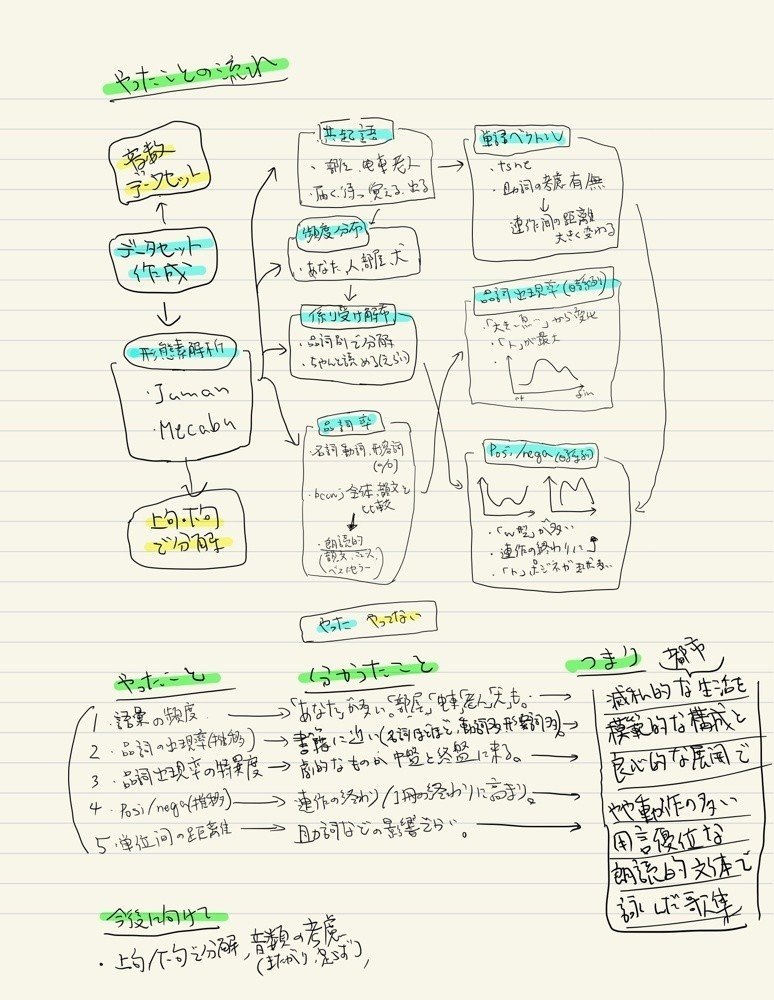 やったことの流れ
音数
データセット
データセット
作成
形態素解析
・Juman
・Mecabu
上句・下句
で分解
共起語
・部屋、電車、老人
・届く、待つ、覚える、出る
頻度分布
・あなた、人、部屋、犬
係り受け解析
・品詞別で分解
・ちゃんと読める(えらい)
品詞率
・名詞、動詞、形容詞
(%)
全体、韻文と
比較
・朗読的
ベストセラー
単語ベクトル
・tsne
・助詞の考慮有/無
連作間の距離
大きく変わる
品詞出現率(時系列)
・「ト」が最大
Posi/nega(時系列)
・「W型」が多い
・連作の終わりに
やった やってない
やったこと
分かったこと
つまり
都市
1. 語彙の頻度
「あなた」が多い。「部屋」「電車」「老人」「犬」も。
2. 品詞の出現率(推移)
書籍に近い(名詞ほどほど、動詞多、形容詞多)。
3. 品詞出現率の特異度
劇的なものが中盤と終盤に来る。
4. Posi/nega(推移)
連作の終わり/1冊の終わりに高まり。
5. 単位間の距離
助詞などの影響えらい。
的な生活を
模範的な構成と
良心的な展開で
やや動作の多い
用言優位な
朗読的文体で
詠んだ歌集
今後に向けて
・上句/下句で分解、音数の考慮
(またがり、足らず)